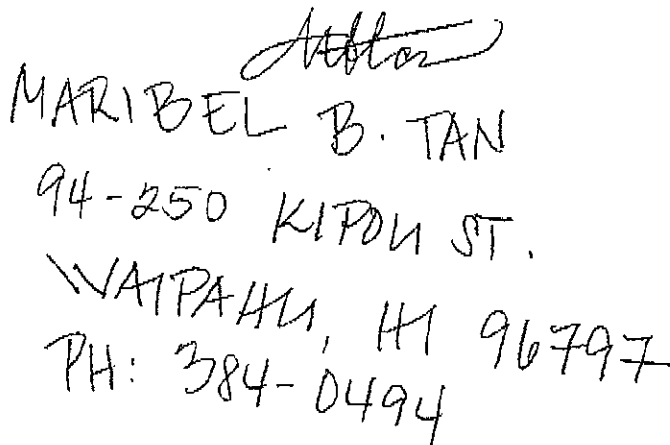 MARIBEL B. TAN
94-250 KIPOU ST.
WAIPAHU, HI 96797
PH: 384-0494